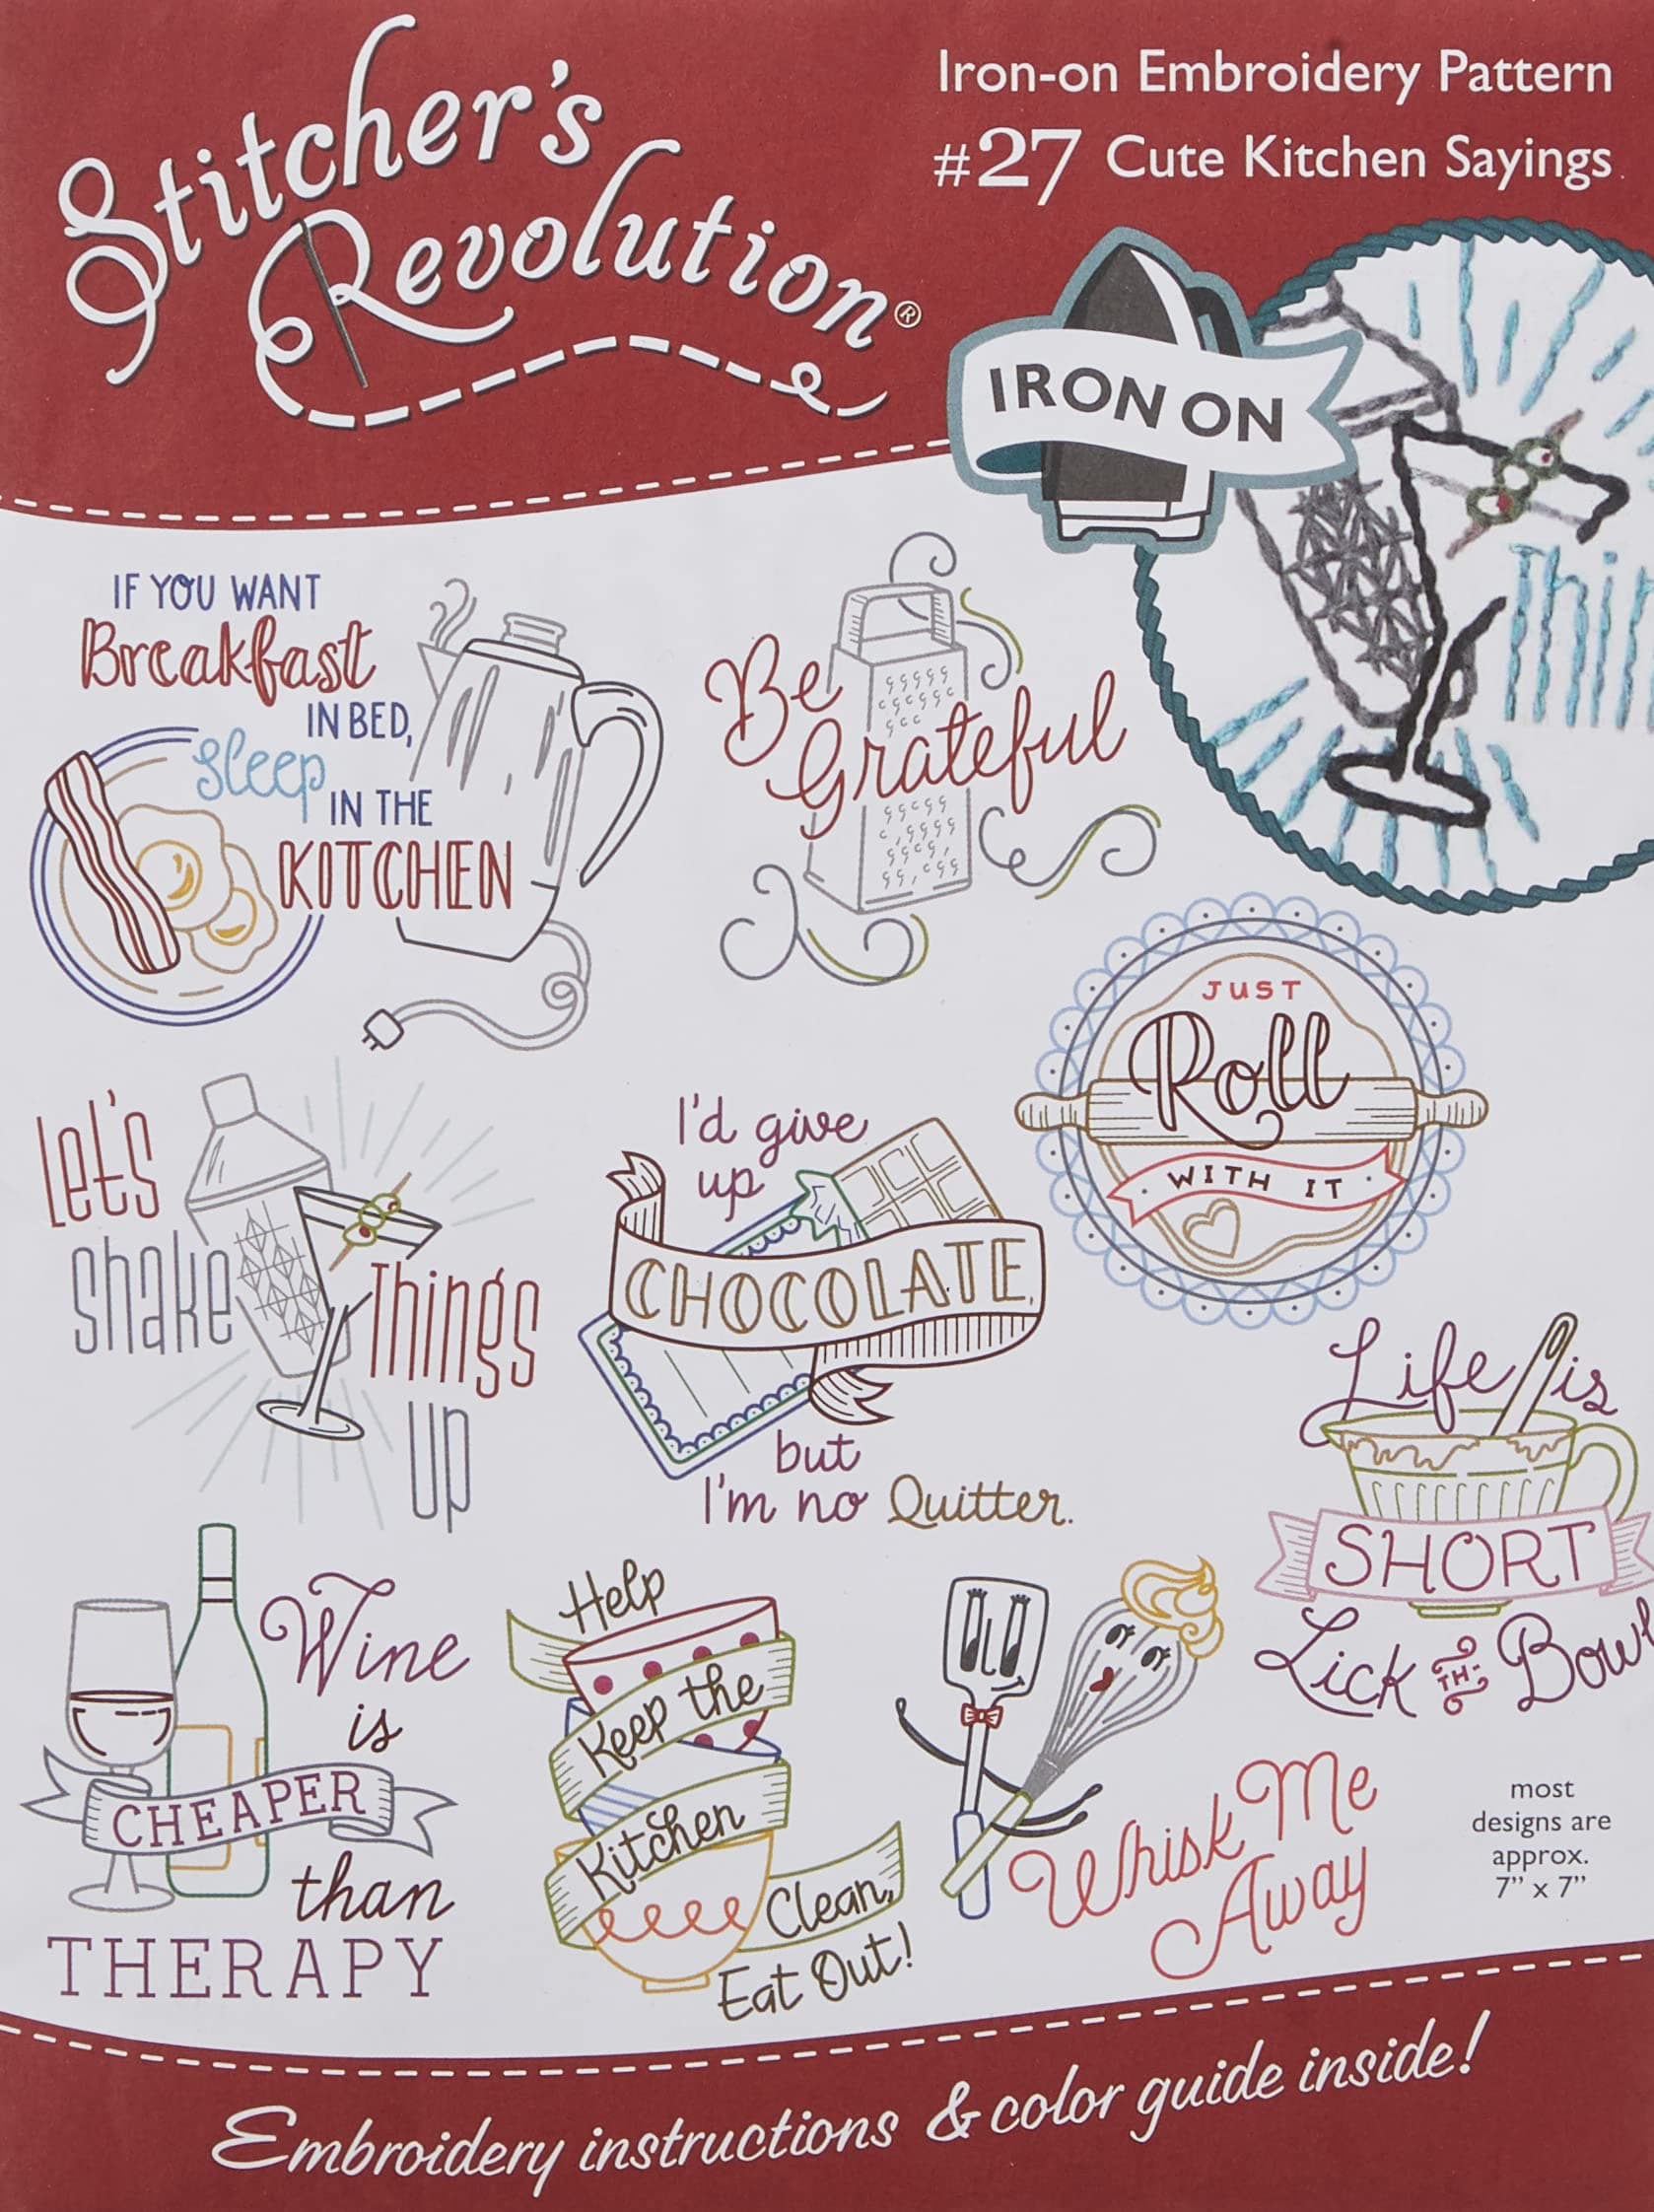 Stitcher's
Revolution®
Iron-on Embroidery Pattern
#27 Cute Kitchen Sayings
IRON ON
Thin
IF YOU WANT
Breakfast
IN BED,
sleep
IN THE
KITCHEN
Be
Grateful
JUST
Roll
WITH IT
Let's
shake
Things
UP
I'd give
up
CHOCOLATE,
but
I'm no Quitter.
Life is
SHORT
Lick TH' Bowl
Wine
is
CHEAPER
than
THERAPY
Help
Keep the
Kitchen
Clean,
Eat Out!
Whisk Me
Away
most
designs are
approx.
7" x 7"
Embroidery instructions & color guide inside!